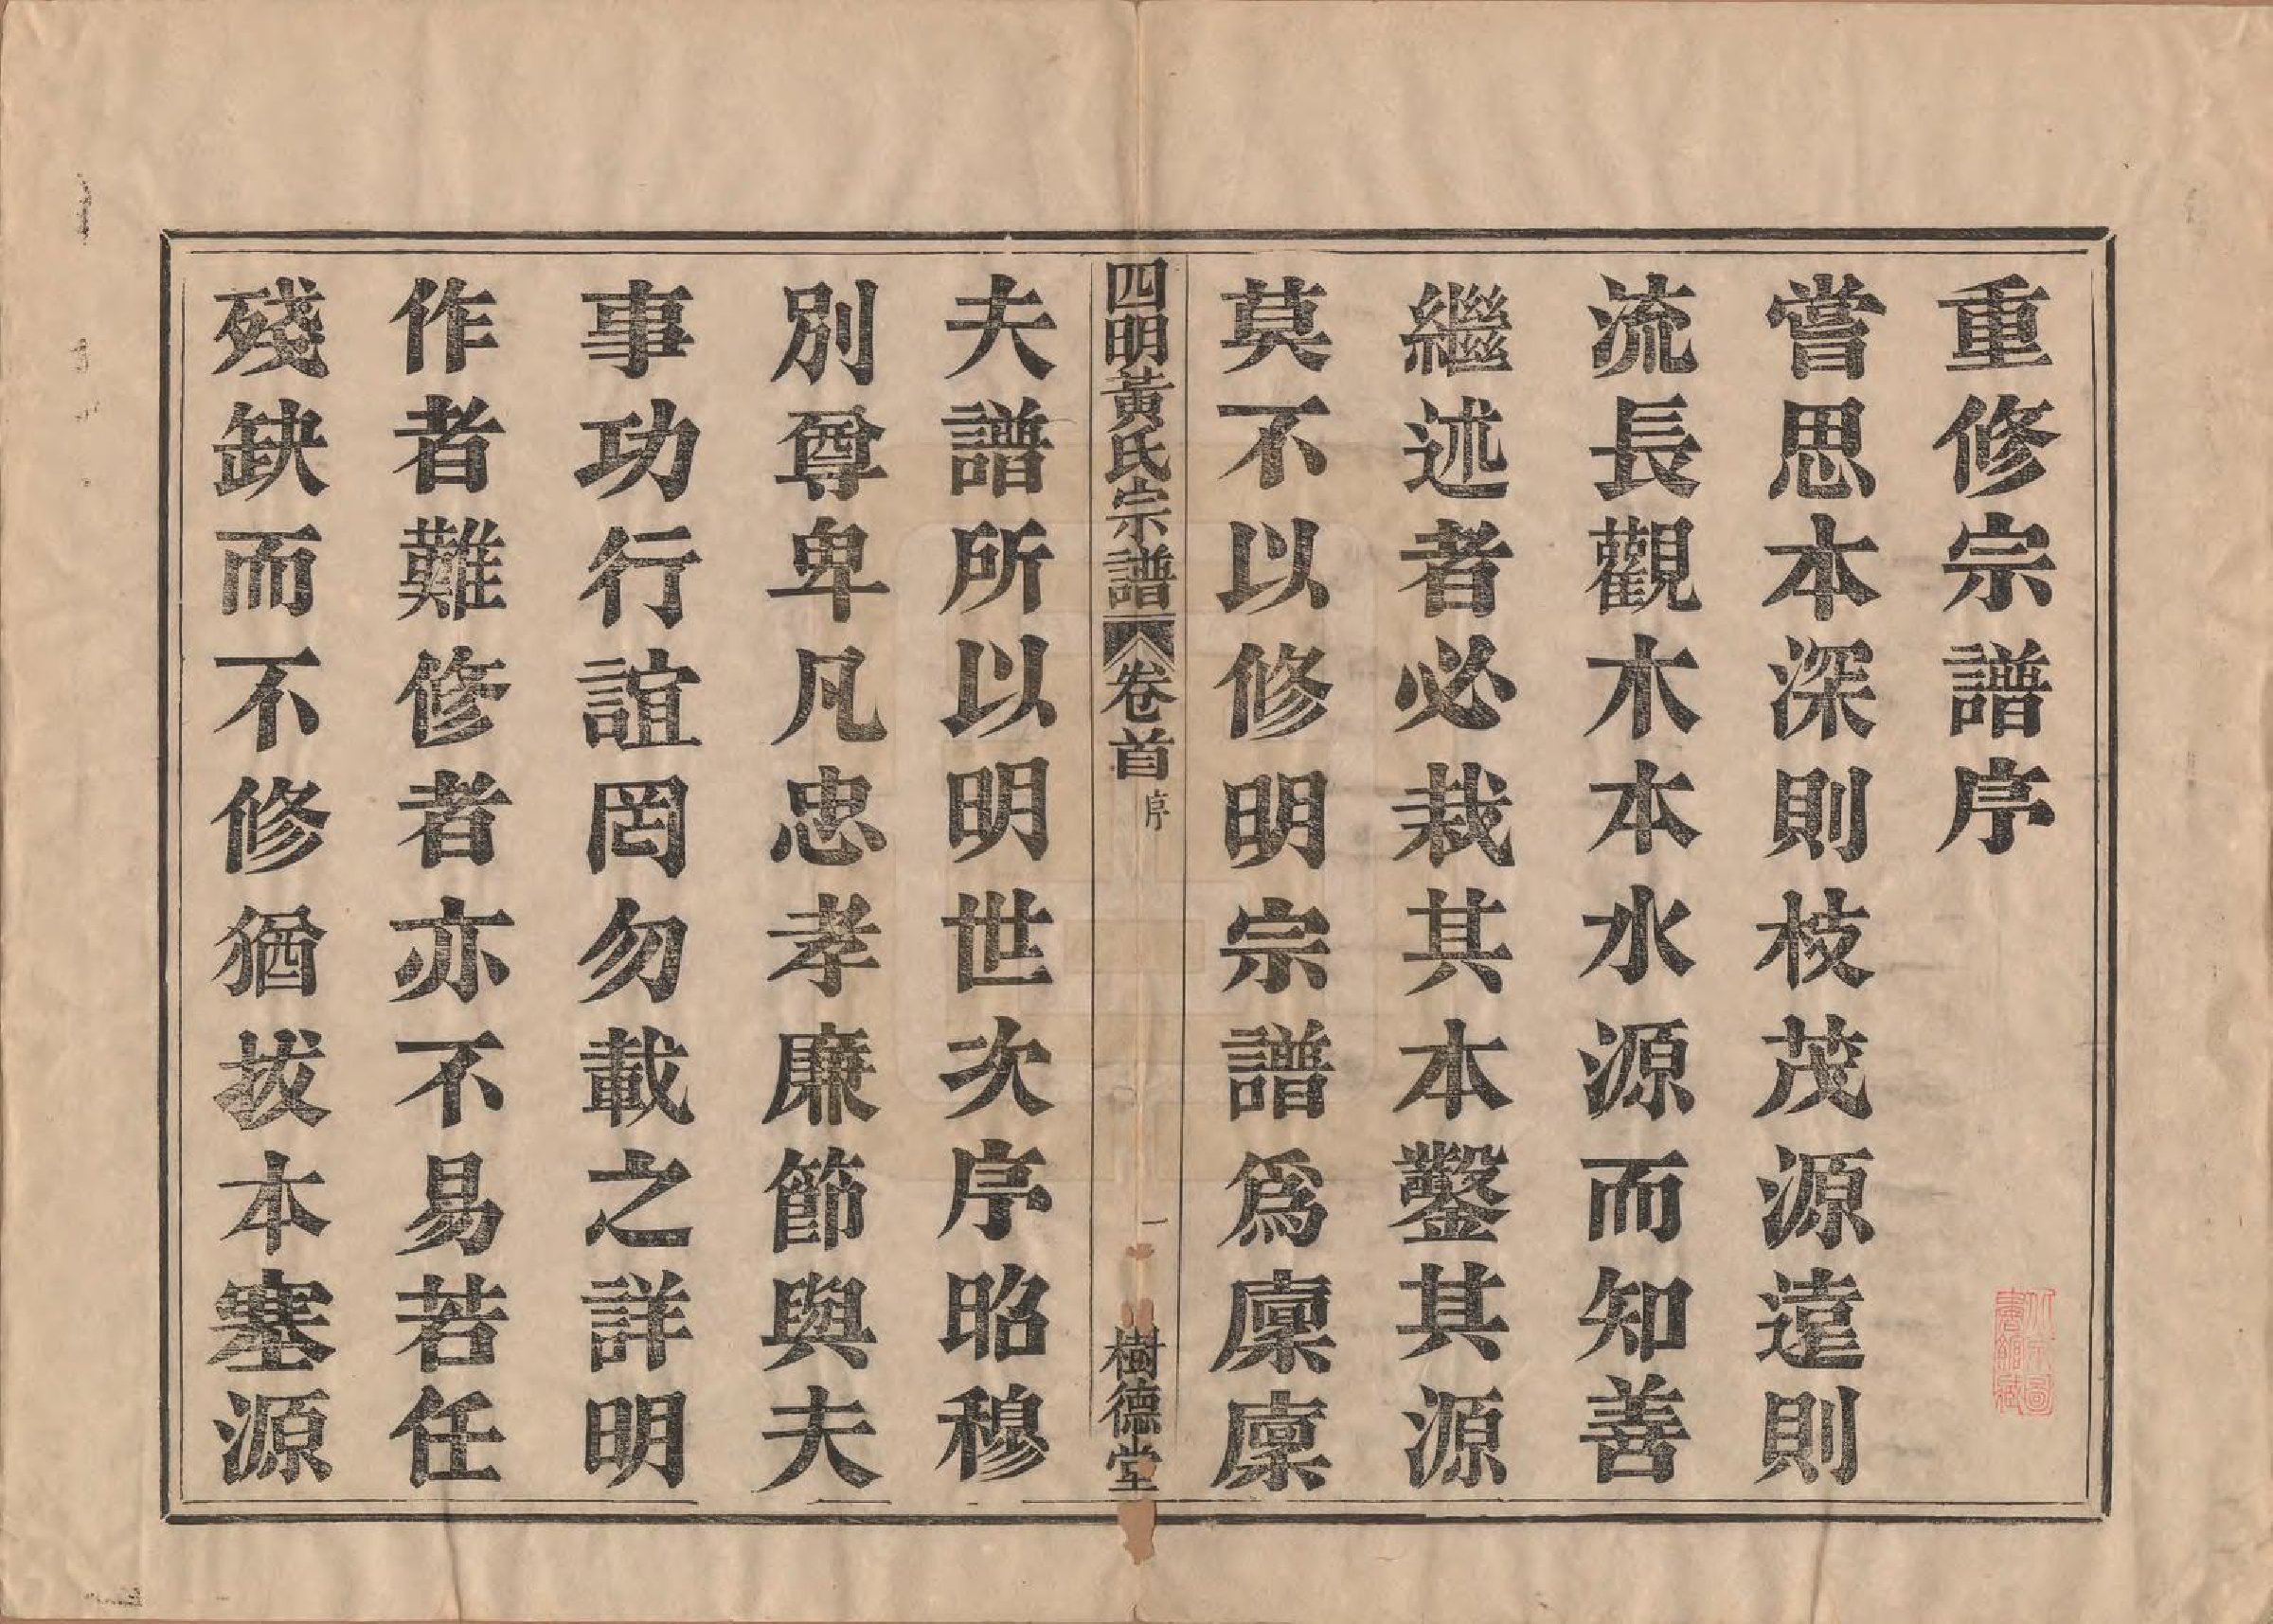 重修宗譜序
嘗思本深則枝茂源遠則
流長觀木本水源而知善
繼述者必栽其本鑿其源
莫不以修明宗譜爲廩廩
四明黃氏宗譜 卷首 序 一 樹德堂
夫譜所以明世次序昭穆
別尊卑凡忠孝廉節與夫
事功行誼罔勿載之詳明
作者難修者亦不易若任
殘缺而不修猶拔本塞源